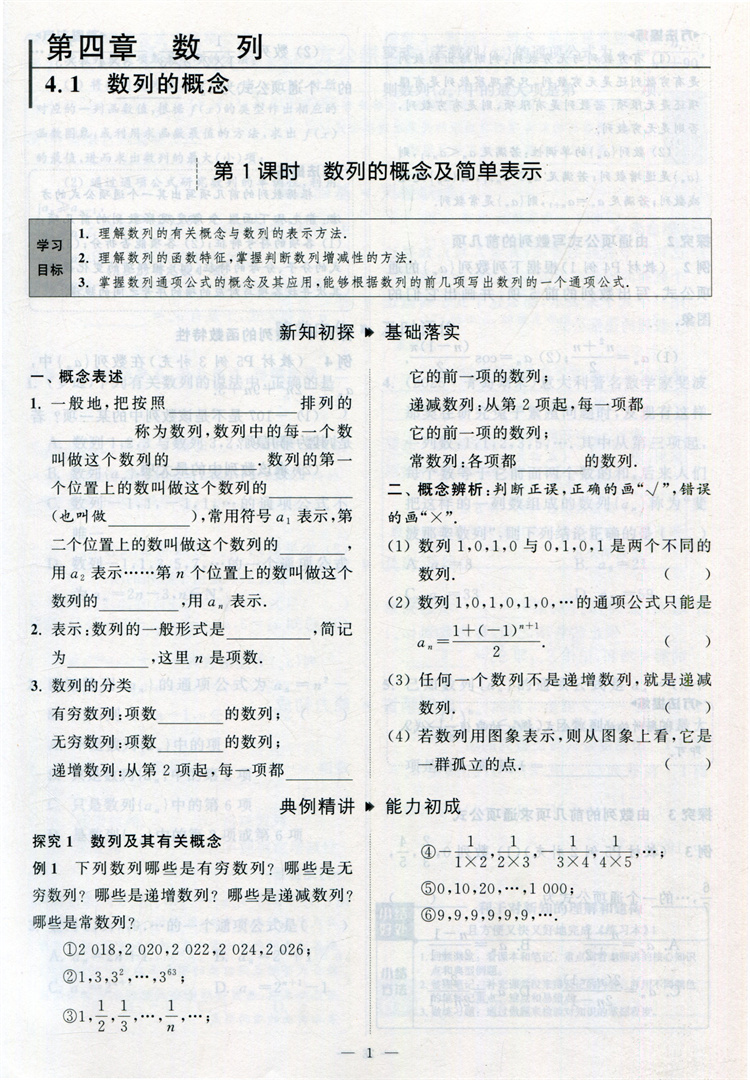 第四章 数 列
4.1 数列的概念
第1课时 数列的概念及简单表示
学习
目标
1. 理解数列的有关概念与数列的表示方法.
2. 理解数列的函数特征,掌握判断数列增减性的方法.
3. 掌握数列通项公式的概念及其应用,能够根据数列的前几项写出数列的一个通项公式.
新知初探 ▶ 基础落实
一、概念表述
1. 一般地,把按照__________排列的
__________称为数列,数列中的每一个数
叫做这个数列的__________.数列的第一
个位置上的数叫做这个数列的__________
(也叫做__________),常用符号a₁表示,第
二个位置上的数叫做这个数列的________,
用a₂表示……第n个位置上的数叫做这个
数列的__________,用aₙ表示.
2. 表示:数列的一般形式是__________,简记
为__________,这里n是项数.
3. 数列的分类
有穷数列:项数________的数列;
无穷数列:项数________的数列;
递增数列:从第2项起,每一项都________
它的前一项的数列;
递减数列:从第2项起,每一项都________
它的前一项的数列;
常数列:各项都________的数列.
二、概念辨析:判断正误,正确的画“√”,错误
的画“×”.
(1) 数列1,0,1,0与0,1,0,1是两个不同的
数列. ( )
(2) 数列1,0,1,0,1,0,…的通项公式只能是
aₙ=(1+(-1)ⁿ⁺¹)/2. ( )
(3) 任何一个数列不是递增数列,就是递减
数列. ( )
(4) 若数列用图象表示,则从图象上看,它是
一群孤立的点. ( )
典例精讲 ▶ 能力初成
探究1 数列及其有关概念
例1 下列数列哪些是有穷数列?哪些是无
穷数列?哪些是递增数列?哪些是递减数列?
哪些是常数列?
①2 018,2 020,2 022,2 024,2 026;
②1,3,3²,…,3⁶³;
③1,1/2,1/3,…,1/n,…;
④-1/(1×2),1/(2×3),-1/(3×4),1/(4×5),…;
⑤0,10,20,…,1 000;
⑥9,9,9,9,9,9,….
— 1 —